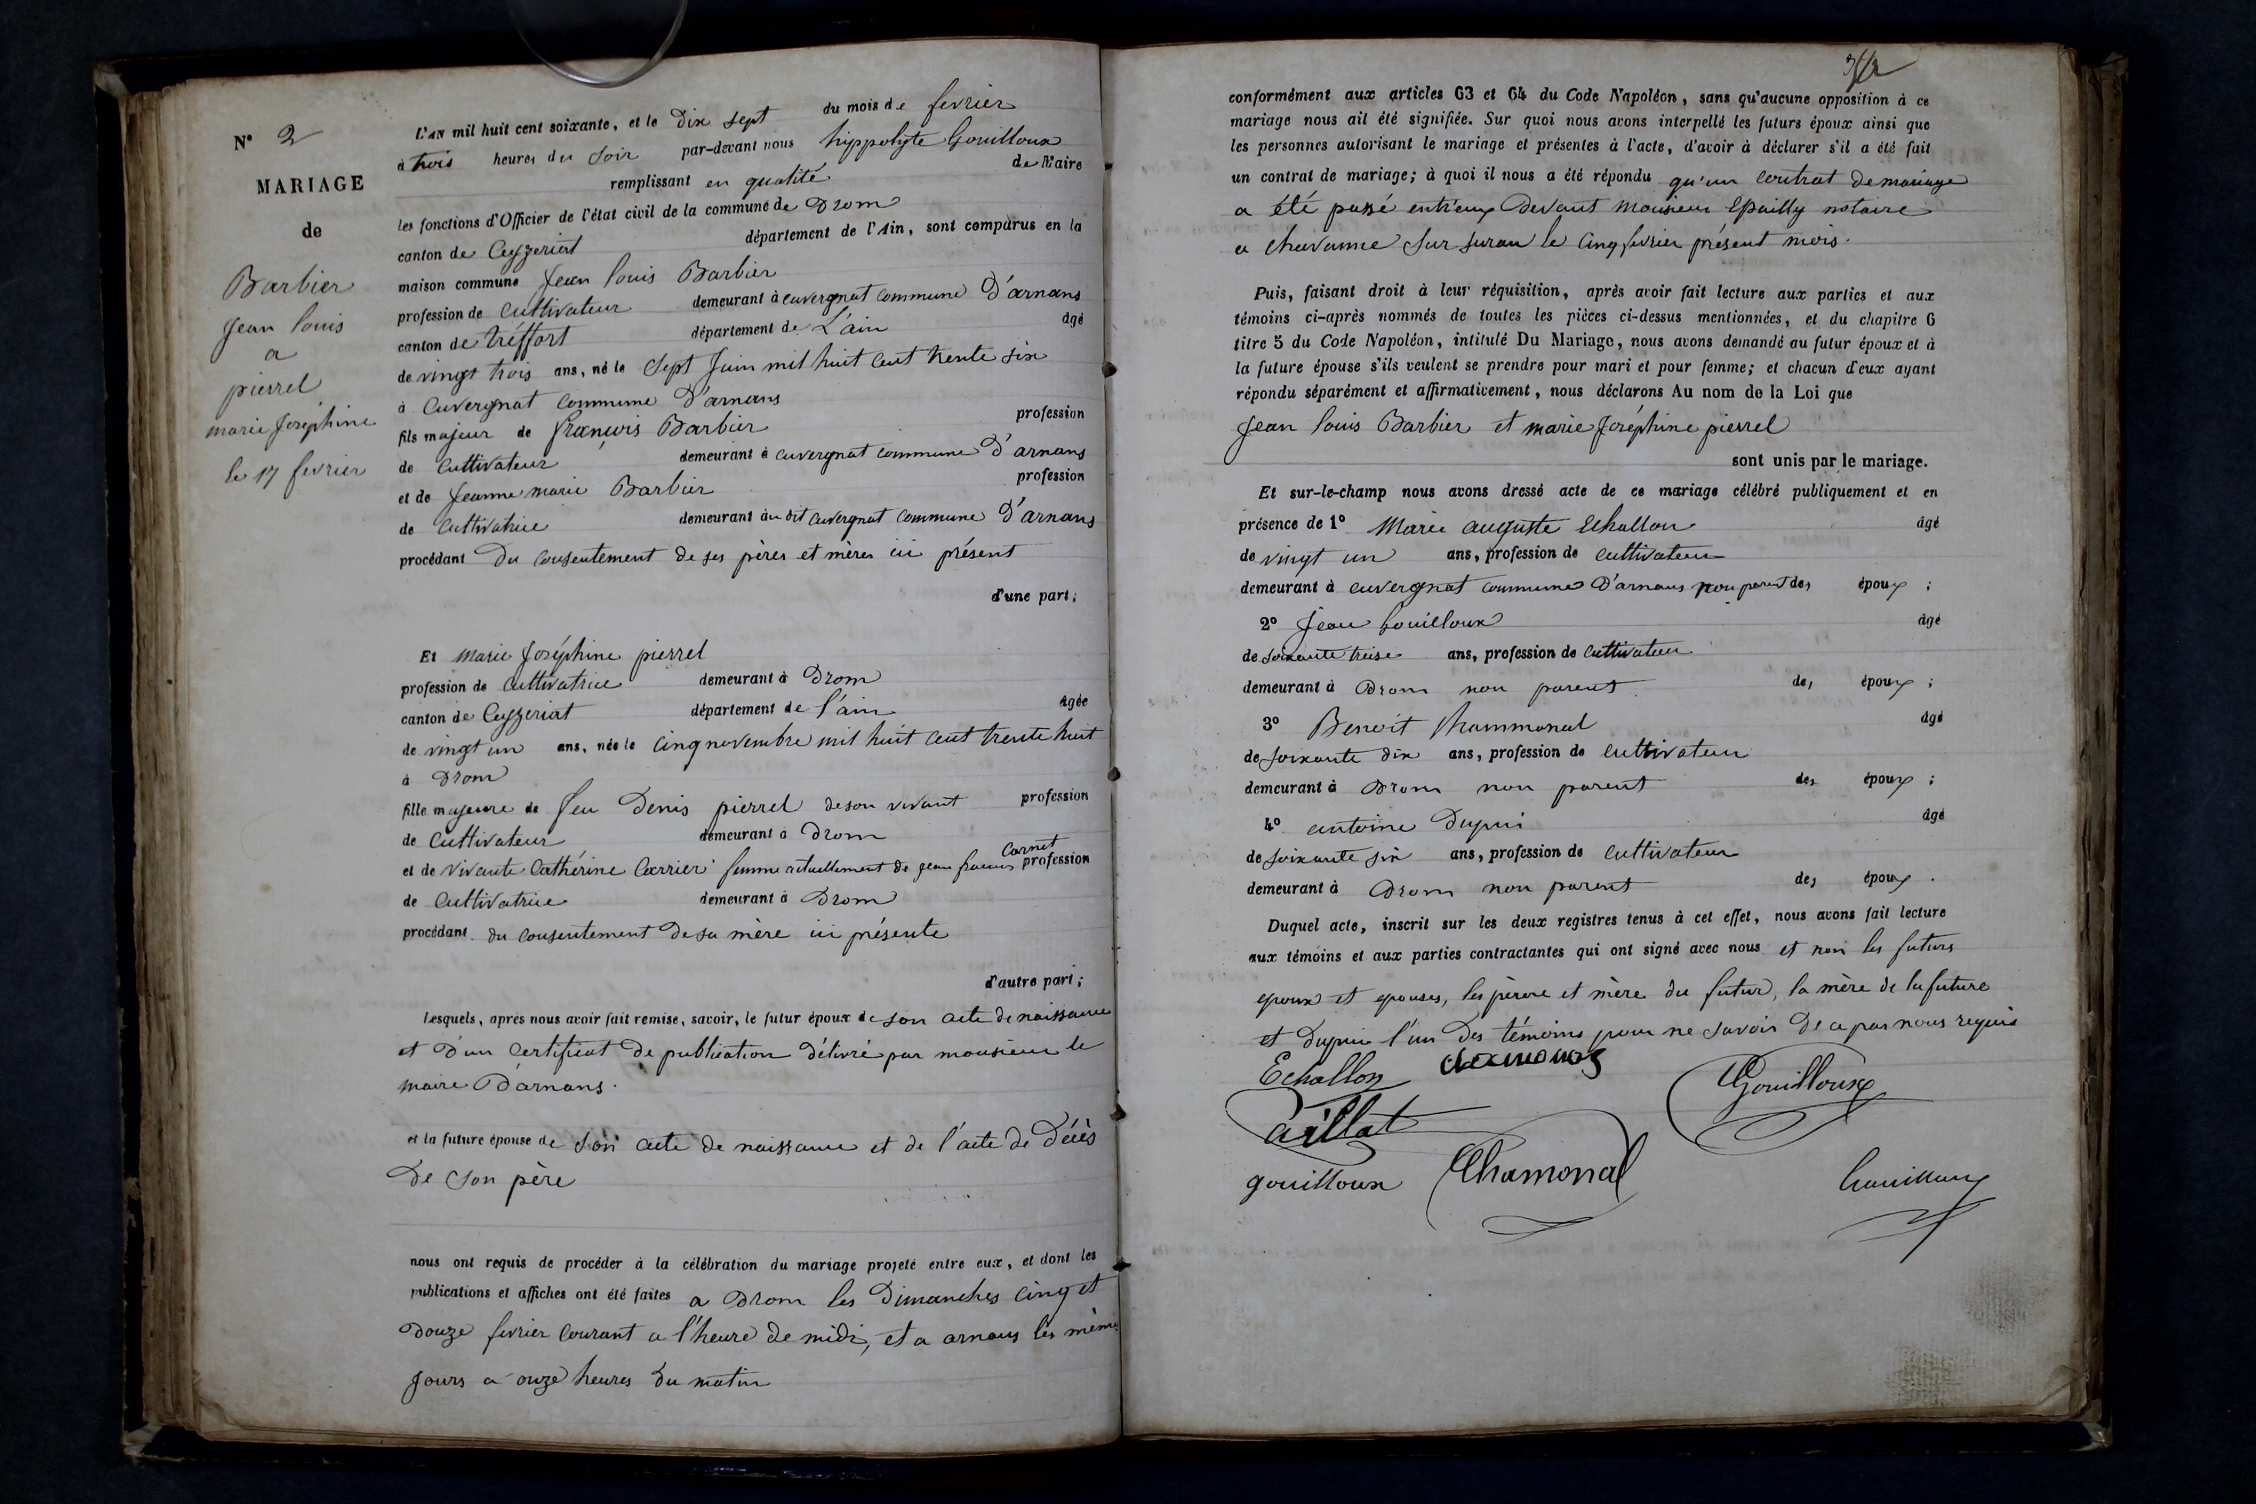 N° 2
MARIAGE
de
Barbier
Jean louis
a
pierrel
marie Joséphine
le 17 fevrier
L'AN mil huit cent soixante, et le Dix sept du mois de fevrier
à trois heures du soir par-devant nous hippolyte Gouilloux
remplissant en qualité de Maire
les fonctions d'Officier de l'état civil de la commune de Drom
canton de Ceyzeriat département de l'Ain, sont comparus en la
maison commune Jean louis Barbier
profession de cultivateur demeurant à cuvergnat commune D'arnans
canton de tréffort département de L'ain âgé
de vingt trois ans, né le Sept Juin mil huit cent trente six
à Cuvergnat commune D'arnans
fils majeur de François Barbier profession
de cultivateur demeurant à cuvergnat commune D'arnans
et de Jeanne marie Barbier profession
de cultivatrice demeurant au dit cuvergnat commune D'arnans
procédant Du consentement de ses pères et mères ici présent
d'une part;
Et Marie Joséphine pierrel
profession de cultivatrice demeurant à Drom
canton de Ceyzeriat département de l'ain âgée
de vingt un ans, née le cinq novembre mil huit cent trente huit
à Drom
fille majeure de feu Denis pierrel de son vivant profession
de cultivateur demeurant à Drom
et de vivante Cathérine Carrier femme actuellement de jean francois Cornet profession
de cultivatrice demeurant à Drom
procédant du consentement de sa mère ici présente
d'autre part;
Lesquels, après nous avoir fait remise, savoir, le futur époux de son acte de naissance
et d'un certificat de publication délivré par monsieur le
maire D'arnans.
et la future épouse de son acte de naissance et de l'acte de Décès
De son père
nous ont requis de procéder à la célébration du mariage projeté entre eux, et dont les
publications et affiches ont été faites a Drom les Dimanches cinq et
Douze fevrier courant a l'heure de midi, et a arnans les mêmes
jours a onze heures du matin
conformément aux articles 63 et 64 du Code Napoléon, sans qu'aucune opposition à ce
mariage nous ait été signifiée. Sur quoi nous avons interpellé les futurs époux ainsi que
les personnes autorisant le mariage et présentes à l'acte, d'avoir à déclarer s'il a été fait
un contrat de mariage; à quoi il nous a été répondu qu'un contrat de mariage
a été passé entr'eux Devant monsieur Epailly notaire
a chavanne sur suran le cinq fevrier présent mois.
Puis, faisant droit à leur réquisition, après avoir fait lecture aux parties et aux
témoins ci-après nommés de toutes les pièces ci-dessus mentionnées, et du chapitre 6
titre 5 du Code Napoléon, intitulé Du Mariage, nous avons demandé au futur époux et à
la future épouse s'ils veulent se prendre pour mari et pour femme; et chacun d'eux ayant
répondu séparément et affirmativement, nous déclarons Au nom de la Loi que
Jean louis Barbier et marie Joséphine pierrel
sont unis par le mariage.
Et sur-le-champ nous avons dressé acte de ce mariage célébré publiquement et en
présence de 1° Marie auguste Echallon âgé
de vingt un ans, profession de cultivateur
demeurant à cuvergnat commune D'arnans non parent des époux;
2° Jean Gouilloux âgé
de soixante treise ans, profession de cultivateur
demeurant à Drom non parent des époux;
3° Benoit Chammonal âgé
de soixante dix ans, profession de cultivateur
demeurant à Drom non parent des époux;
4° antoine Dupui âgé
de soixante six ans, profession de cultivateur
demeurant à Drom non parent des époux.
Duquel acte, inscrit sur les deux registres tenus à cet effet, nous avons fait lecture
aux témoins et aux parties contractantes qui ont signé avec nous et non les futurs
epoux et epouses, les père et mère du futur, la mère de la future
et Dupui l'un Des témoins pour ne savoir De ce par nous requis
Echallon
Gouilloux
aillat
gouilloux Chamonal Gouilloux